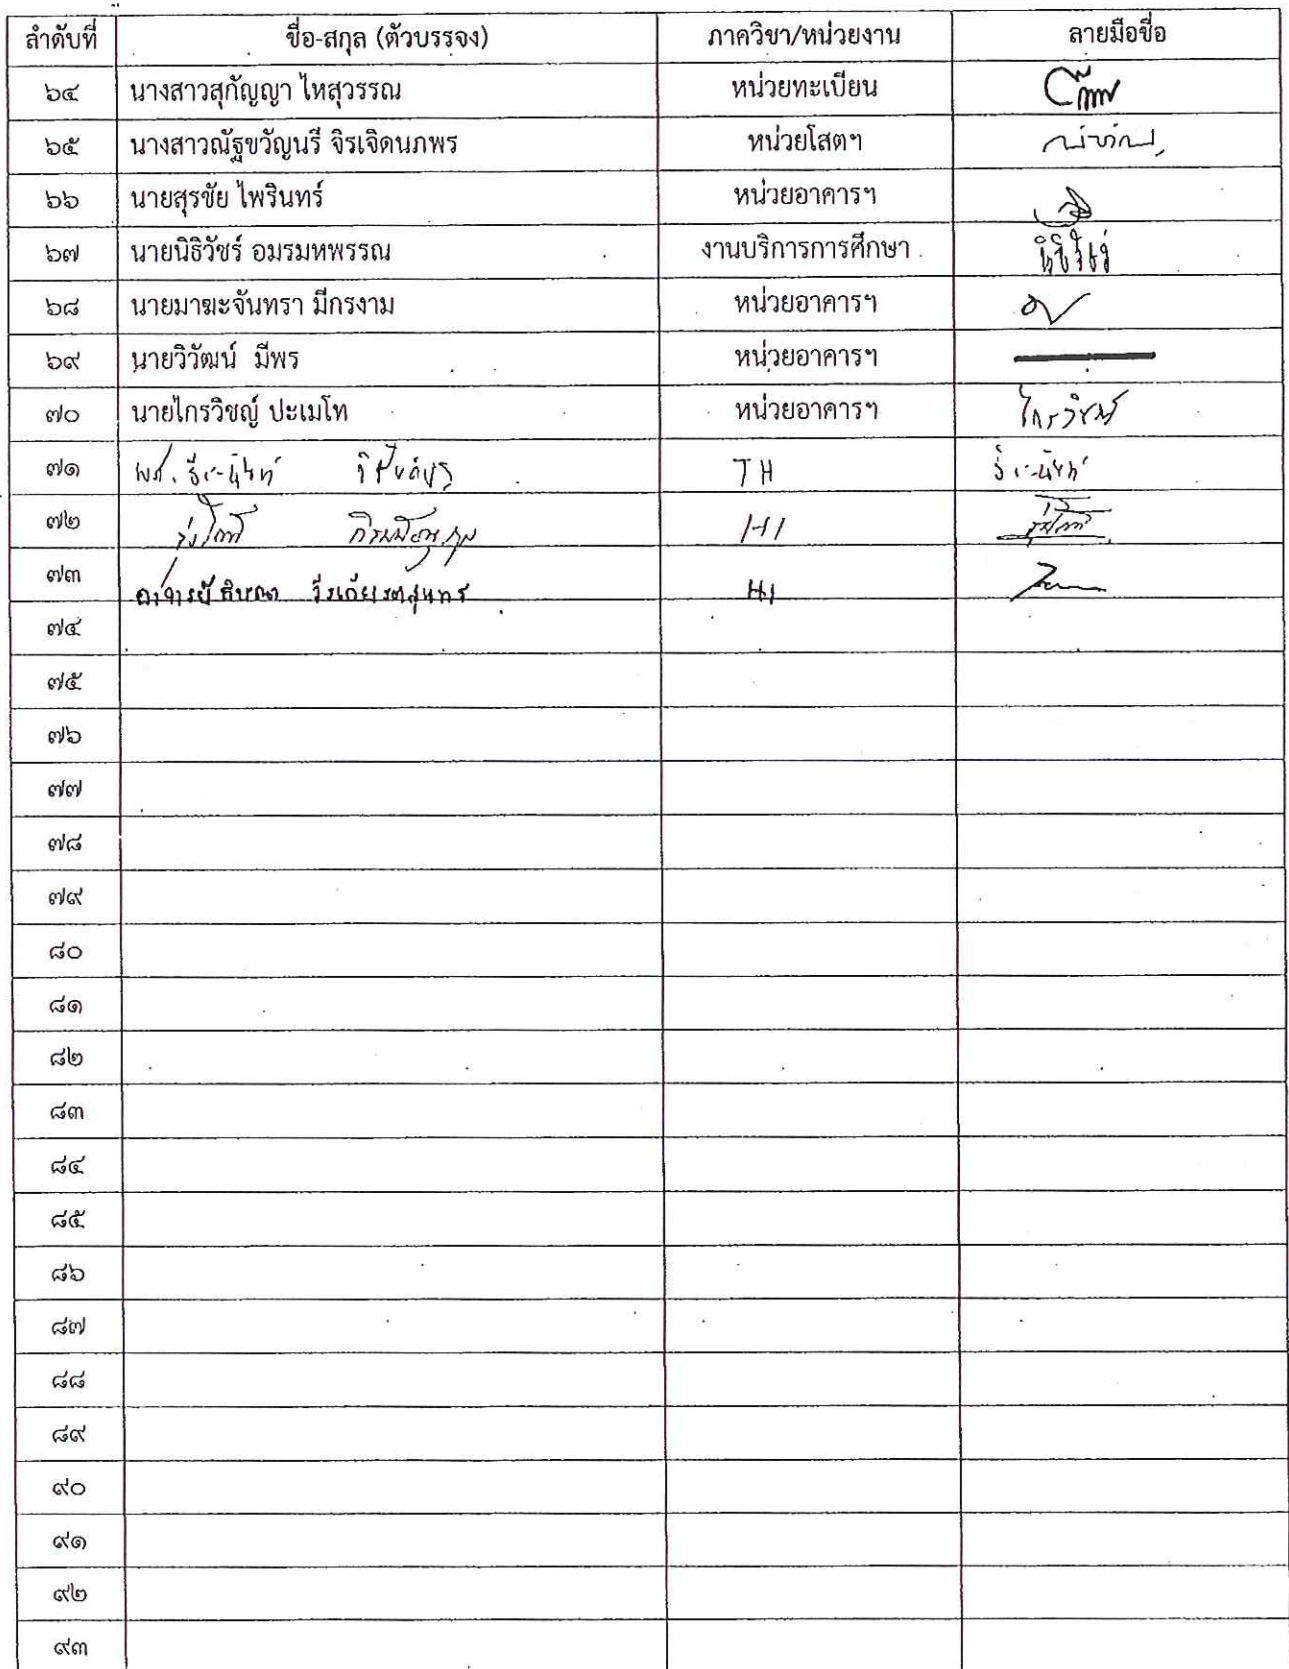 ลำดับที่ ชื่อ-สกุล (ตัวบรรจง) ภาควิขา/หน่วยงาน ลายมือชื่อ
๖๔ นางสาวสุกัญญา ไหสุวรรณ หน่วยทะเบียน
๖๕ นางสาวณัฐขวัญนรี จิรเจิดนภพร หน่วยโสตฯ
๖๖ นายสุรชัย ไพรินทร์ หน่วยอาคารฯ
๖๗ นายนิธิวัชร์ อมรมหพรรณ งานบริการการศึกษา นิธิวัชร์
๖๘ นายมาฆะจันทรา มีกรงาม หน่วยอาคารฯ
๖๙ นายวิวัฒน์ มีพร หน่วยอาคารฯ
๗๐ นายไกรวิชญ์ ปะเมโท หน่วยอาคารฯ ไกรวิชญ์
๗๑ ผศ. TH
๗๒ HI
๗๓ อาจารย์ HI
๗๔
๗๕
๗๖
๗๗
๗๘
๗๙
๘๐
๘๑
๘๒
๘๓
๘๔
๘๕
๘๖
๘๗
๘๘
๘๙
๙๐
๙๑
๙๒
๙๓